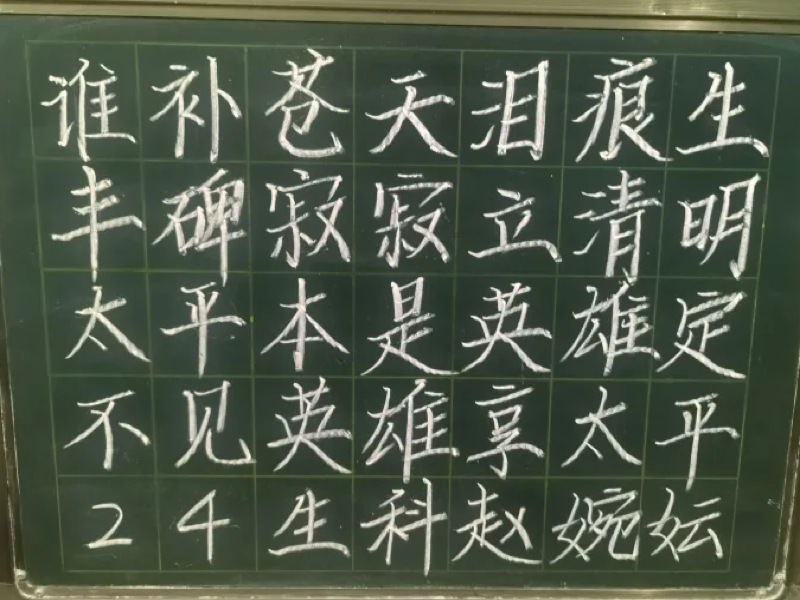 谁补苍天泪痕生
丰碑寂寂立清明
太平本是英雄定
不见英雄享太平
24生科赵婉妘